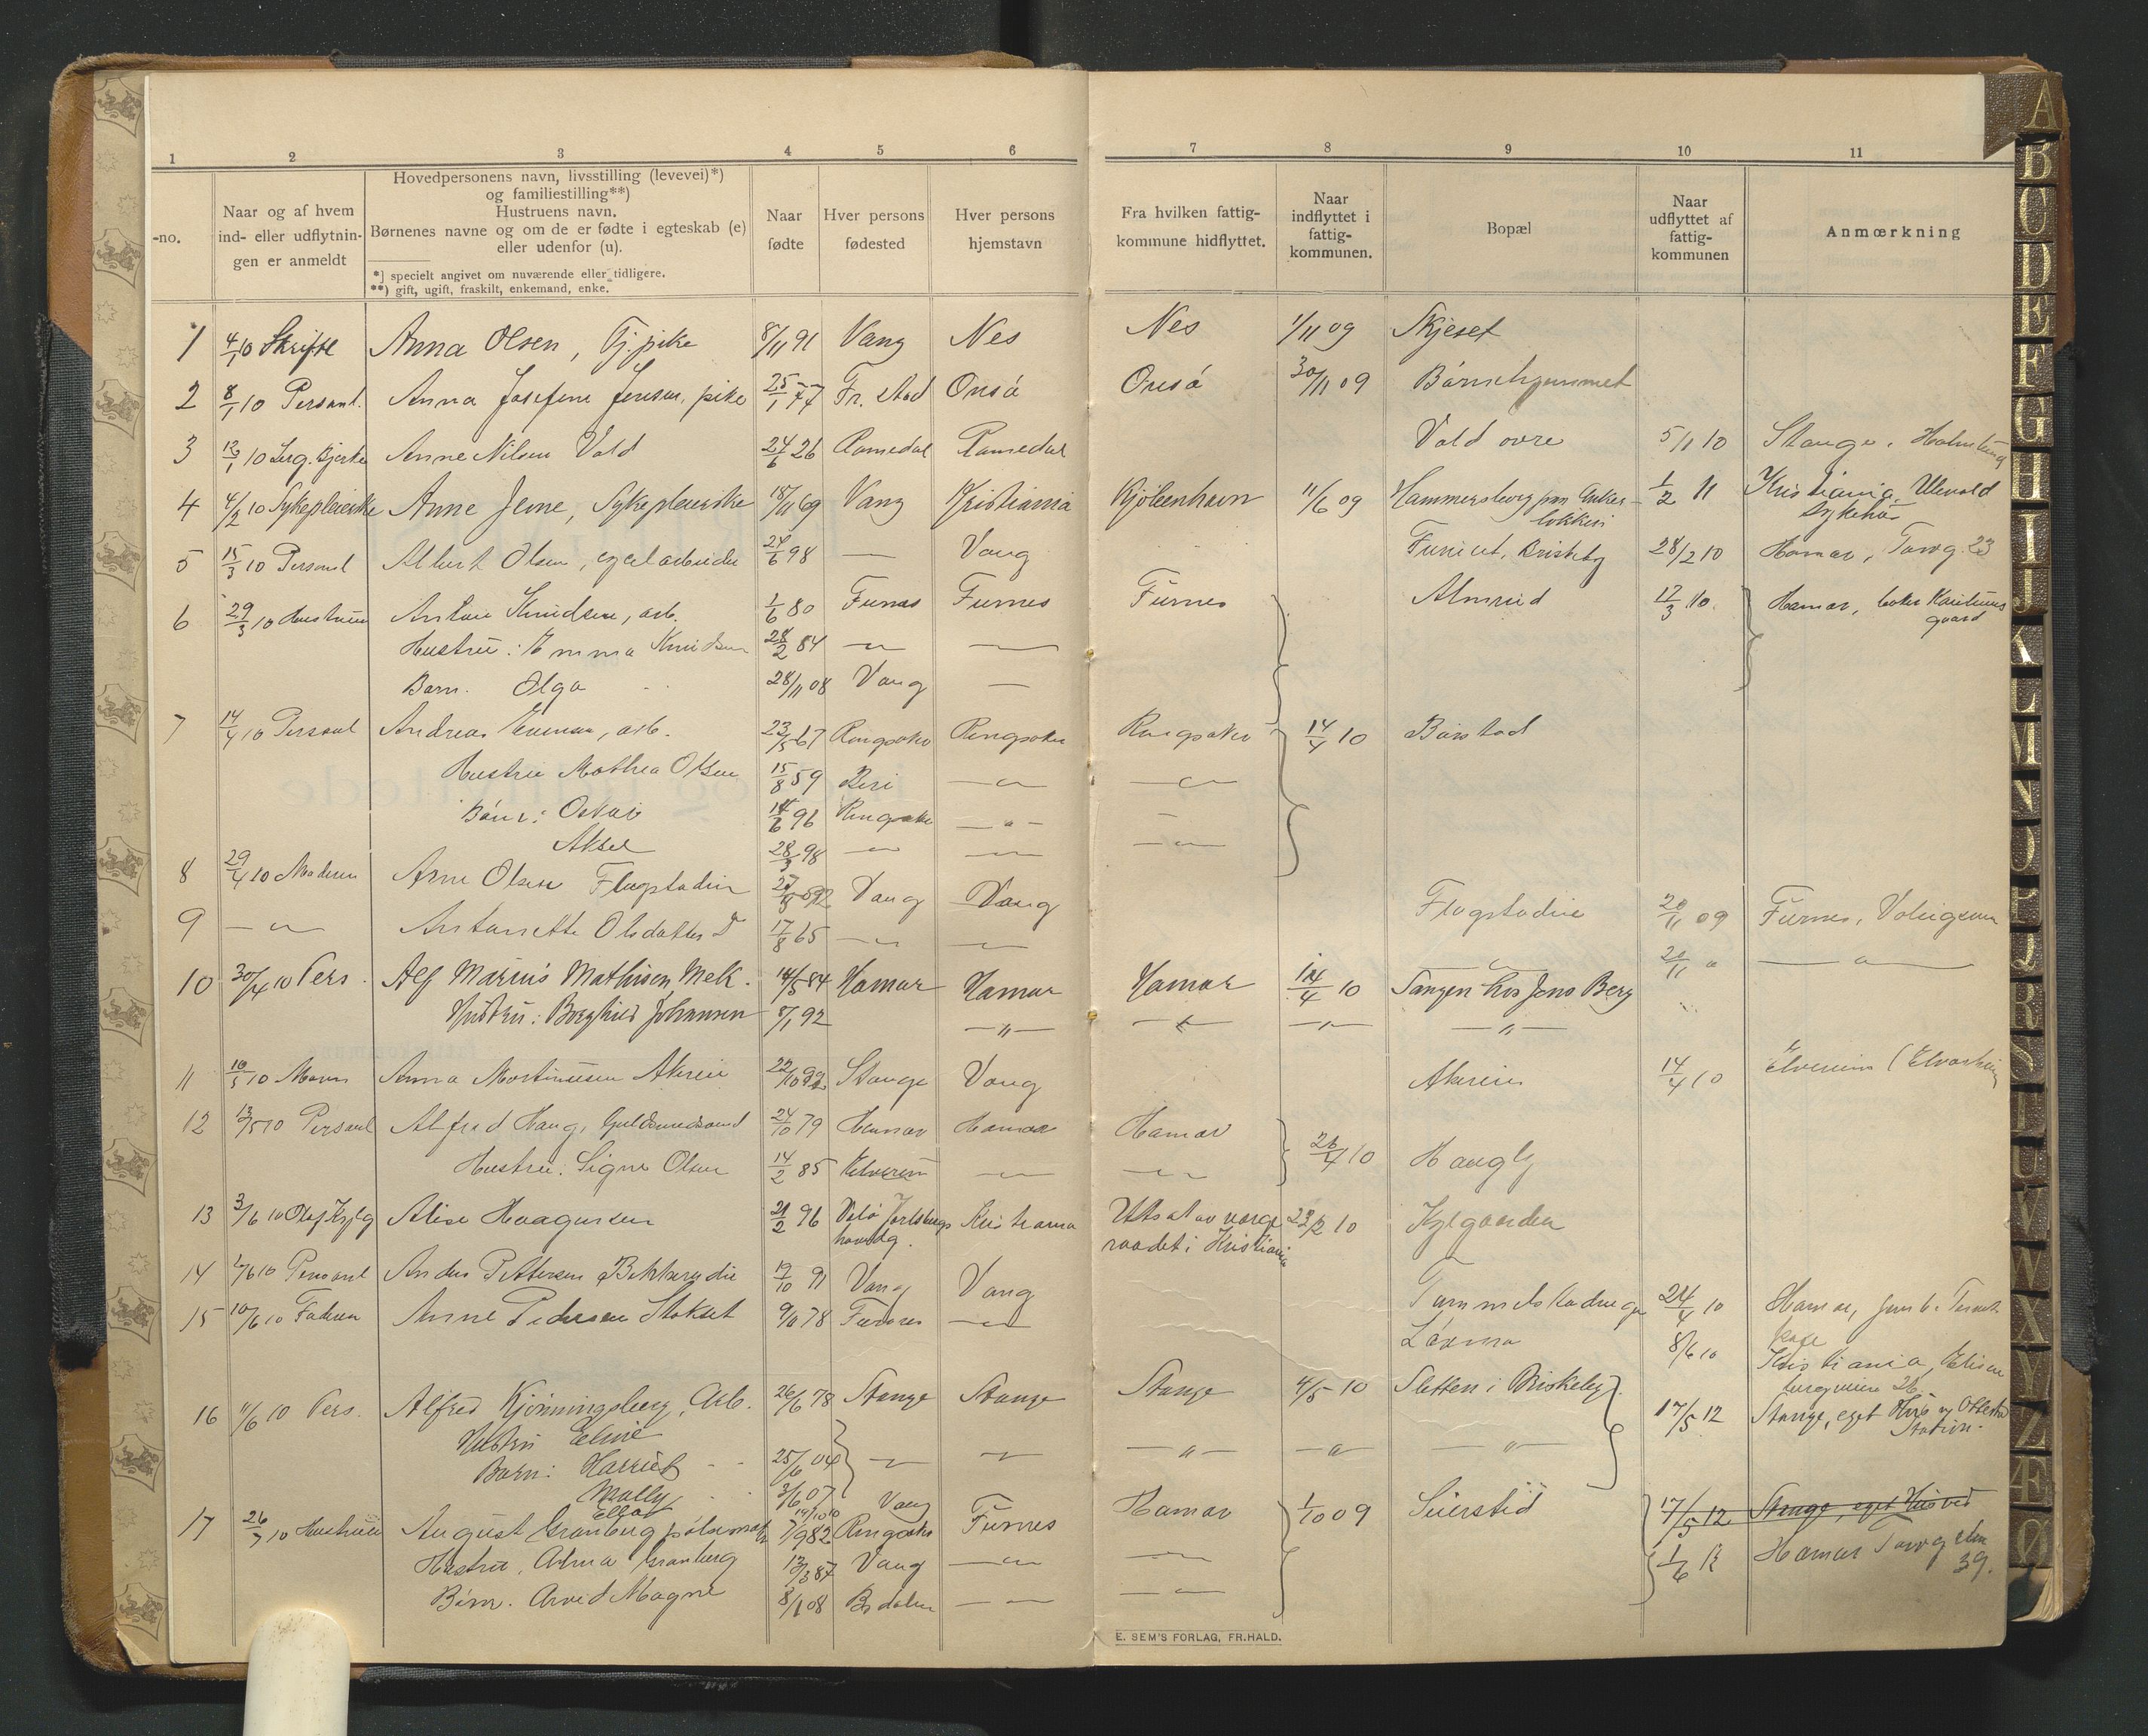 1 2 3 4 5 6 7 8 9 10 11
-no.
Naar og af hvem
ind- eller udflytnin-
gen er anmeldt
Hovedpersonens navn, livsstilling (levevei)*)
og familiestilling**)
Hustruens navn.
Børnenes navne og om de er fødte i egteskab (e)
eller udenfor (u).
*) specielt angivet om nuværende eller tidligere.
**) gift, ugift, fraskilt, enkemand, enke.
Naar
fødte
Hver persons
fødested
Hver persons
hjemstavn
Fra hvilken fattig-
kommune hidflyttet.
Naar
indflyttet i
fattig-
kommunen.
Bopæl
Naar
udflyttet af
fattig-
kommunen
Anmærkning
1 4/1 10 Skriftl Anna Olsen, Tj. pike 8/11 91 Vang Nes Nes 1/11 09 Skjeset
2 8/1 10 Personl. Anna Josefine Jensen, pike 25/1 77 Fr. stad Onsö Onsö 30/11 09 Börnehjemmet
3 12/1 10 Anne Nilsen Vold 24/6 26 Romedal Romedal Vold övre 5/1 10 Stange,
4 4/2 10 Sykepleierske Anne Jenne, Sykepleierske 18/11 69 Vang Kristiania Kjöbenhavn 11/6 09 Hammersborg 1/2 11 Kristiania, Ulevold
lökken sykehus
5 15/3 10 Personl Albert Olsen, 24/6 98 — Vang Briskeby 28/2 10 Hamar, Torvg. 23
6 29/3 10 Hustruen Anton Knudsen, arb. 1/6 80 Furnes Furnes Furnes Almrud 17/3 10. Hamar,
gaard
Hustru: Emma Knudsen 28/2 84 — " — — " —
Barn. Olga 28/11 08 Vang —
7 14/4 10 Personl Andreas Evensen, arb. 23/5 67 Ringsaker Ringsaker Ringsaker 14/4 10 Börstad
Hustru Mathea Olsen 15/8 59 Biri — " — — " —
Börn: Oskar 14/6 96 Ringsaker — " — —
Aksel 28/3 98 — " — — " — — " —
8 29/4 10 Moderen Arne Olsen Flagstadeie Vang Vang Flagstadeie 20/11 09 Furnes,
9 — " — Antonette Olsdatter D 17/8 65 — " — — " — — " — 20/11 " — " —
10 30/4 10 Pers. Alf Marius Mathisen Mek. 14/5 84 Hamar Hamar Hamar 14/4 10 Sangen hos Jens Berg
Hustru: Borghild Johansen 8/1 92 — " — — " — — " — — " —
11 10/5 10 Anna Mortinusen Akreie 22/10 92 Stange Vang Akreie 14/4 10 Elverum
12 13/5 10 Personl Alfred Haug, Guldsmedsvend 24/10 79 Hamar Hamar Hamar 26/4 10 Haugly
Hustru: Signe Olsen 14/2 85 Elverum — " — — " —
13 3/6 10 Alise Haagensen 21/2 96 Jarlsberg Kristiania Utsat av værge 10
raadet i Kristiania
14 10 Personl Anders Pettersen Bekkerudeie 19/10 91 Vang Vang 24/4 10 Hamar,
15 10/6 10 Faderen Anne Pedersen Stokset 78 Furnes — " — 8/6 10 Kristiania,
16 11/6 10 Pers. Alfred Kjönningsberg, Arb. 26/6 78 Stange Stange Stange 4/5 10 Sletten i Briskeby 17/5 12 Stange, eget Hus v. Ottestad
Station.
Hustru Eline
Barn: Harriet 25/6 04 — " — — " — — " — — " — — " —
Molly 3/6 07
Ellas Vang
17 26/7 10 Hustruen August Granberg 7/9 82 Ringsaker Furnes Hamar 1/10 09 Seierstid 17/5 12 Stange, eget Hus ved
Hustru, Alma Granberg 13/3 87 Vang — " — — " — 1/6 12 Hamar Torvgaten
39.
Börn. Arvid Magne 8/1 08 — " — — " —
E. SEM'S FORLAG, FR.HALD.
A
B
C
D
E
F
G
H
I
J
K
L
M
N
O
R
U
V
W
X
Y
Z
Æ
Ø